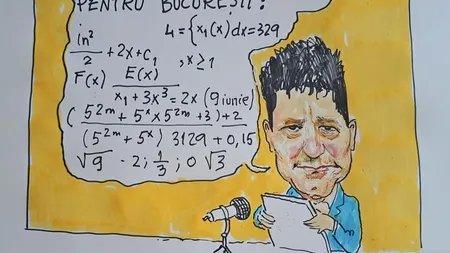 PENTRU BUCUREȘTI:
in² 4={x₁(x)dx=329
/2 +2x+c₁ ,x≥1
F(x) E(x)
x₁+3x³=2x (9iunie)
(5²ᵐ+5ˣx5²ᵐ+3)+2
(5²ᵐ+5ˣ) 3129+0,15
√9 -2; 1/3 ; 0 √3